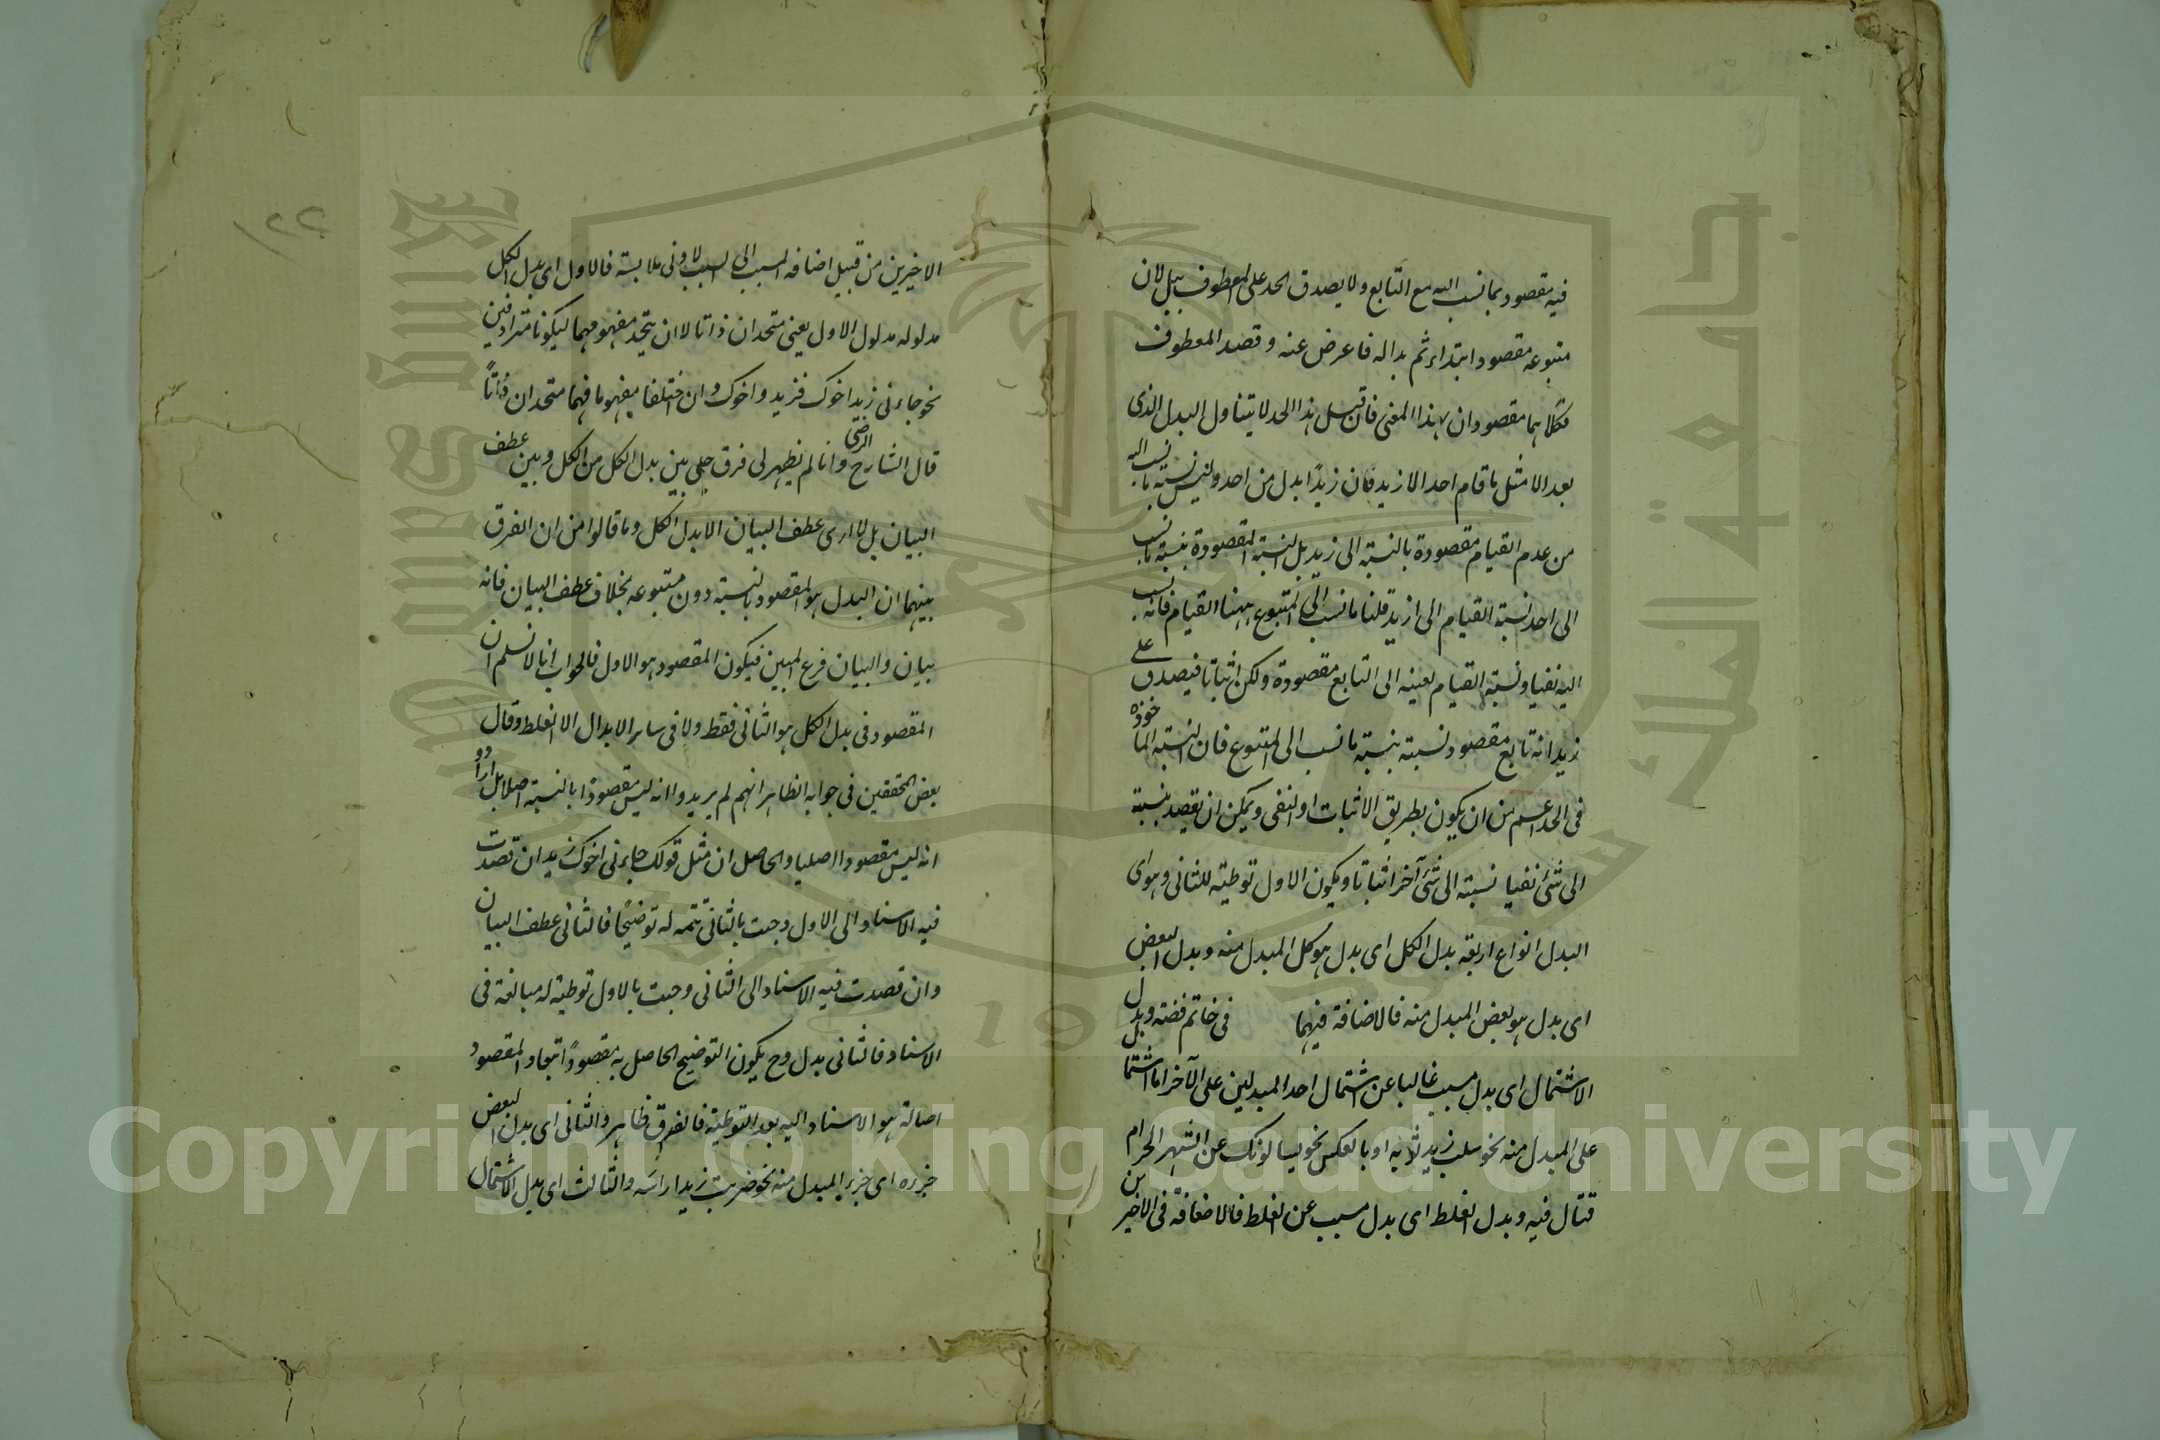 فيه مقصود بما نسب اليه مع التابع ولا يصدق الحد على المعطوف ببل لان
متبوعه مقصود ابتداء ثم بدا له فاعرض عنه وقصد المعطوف
فكلاهما مقصودان بهذا المعنى فان قيل هذا الحد لا يتناول البدل الذى
بعد الا مثل ما قام احد الا زيد فان زيدًا بدل من احد وليس نسبة ما نسب اليه
من عدم القيام مقصودة بالنسبة الى زيد بل النسبة المقصودة بنسبة ما نسب
الى احد نسبة القيام الى زيد قلنا ما نسب الى المتبوع ههنا القيام فانه نسب
اليه نفيا ونسبة القيام بعينه الى التابع مقصودة ولكن اثباتا فيصدق على
زيد انه تابع مقصود نسبته بنسبة ما نسب الى المتبوع فان النسبة الماخوذه
فى الحد اعم من ان يكون بطريق الاثبات او النفى ويمكن ان يقصد بنسبة
الى شئ نفيا نسبته الى شئ آخر اثباتا ويكون الاول توطية للثانى وهو اى
البدل انواع اربعة بدل الكل اى بدل هو كل المبدل منه وبدل البعض
اى بدل هو بعض المبدل منه فالاضافة فيهما فى خاتم فضة وبدل
الاشتمال اى بدل مسبب غالبا عن اشتمال احد المبدلين على الآخر اما اشتما
على المبدل منه نحو سلب زيد ثوبه او بالعكس نحو يسالونك عن الشهر الحرام
قتال فيه وبدل الغلط اى بدل مسبب عن الغلط فالاضافة فى الاخيرين
١٢٢
الاخيرين من قبيل اضافة المسبب الى السبب لادنى ملابسة فالاول اى بدل الكل
مدلوله مدلول الاول يعنى متحدان ذاتا لا ان يتحد مفهومهما ليكونا مترادفين
نحو جاءنى زيد اخوك فزيد واخوك وان اختلفا مفهوما فهما متحدان ذاتاً
قال الشارح الرضى وانا لم يظهر لى فرق جلى بين بدل الكل من الكل وبين عطف
البيان بل لا ارى عطف البيان الا بدل الكل وما قالوا من ان الفرق
بينهما ان البدل هو المقصود بالنسبة دون متبوعه بخلاف عطف البيان فانه
بيان والبيان فرع المبين فيكون المقصود هو الاول فالجواب انا لا نسلم ان
المقصود فى بدل الكل هو الثانى فقط ولا فى ساير الابدال الا الغلط وقال
بعض المحققين فى جوابه الظاهر انهم لم يريدوا انه ليس مقصودا بالنسبة اصلا بل ارادوا
انه ليس مقصودا اصليا والحاصل ان مثل قولك جاءنى اخوك زيد ان قصدت
فيه الاسناد الى الاول وجئت بالثانى تتمة له توضيحًا فالثانى عطف البيان
وان قصدت فيه الاسناد الى الثانى وجئت بالاول توطية له مبالغة فى
الاسناد فالثانى بدل وح يكون التوضيح الحاصل به مقصودًا تبعا والمقصود
اصالة هو الاسناد اليه بعد التوطية فالفرق ظاهر والثانى اى بدل البعض
جزءه اى جزء المبدل منه نحو ضربت زيدا راسه والثالث اى بدل الاشتمال
King Saud University
جامعة الملك
19
Copyright © King Saud University